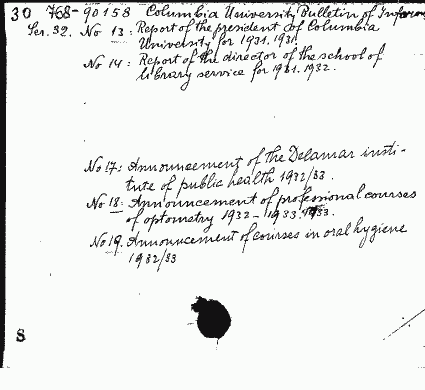 30 768-90158 Columbia University Bulletin of Inform
Ser. 32. No 13: Report of the president of Columbia
University for 1931.1931.
No 14: Report of the director of the school of
library service for 1931.1932.
No 17: Announcement of the Delamar insti-
tute of public health 1932/33.
No 18: Announcement of professional courses
of optometry 1932-1933.
No 19. Announcement of courses in oral hygiene
1932/33
S